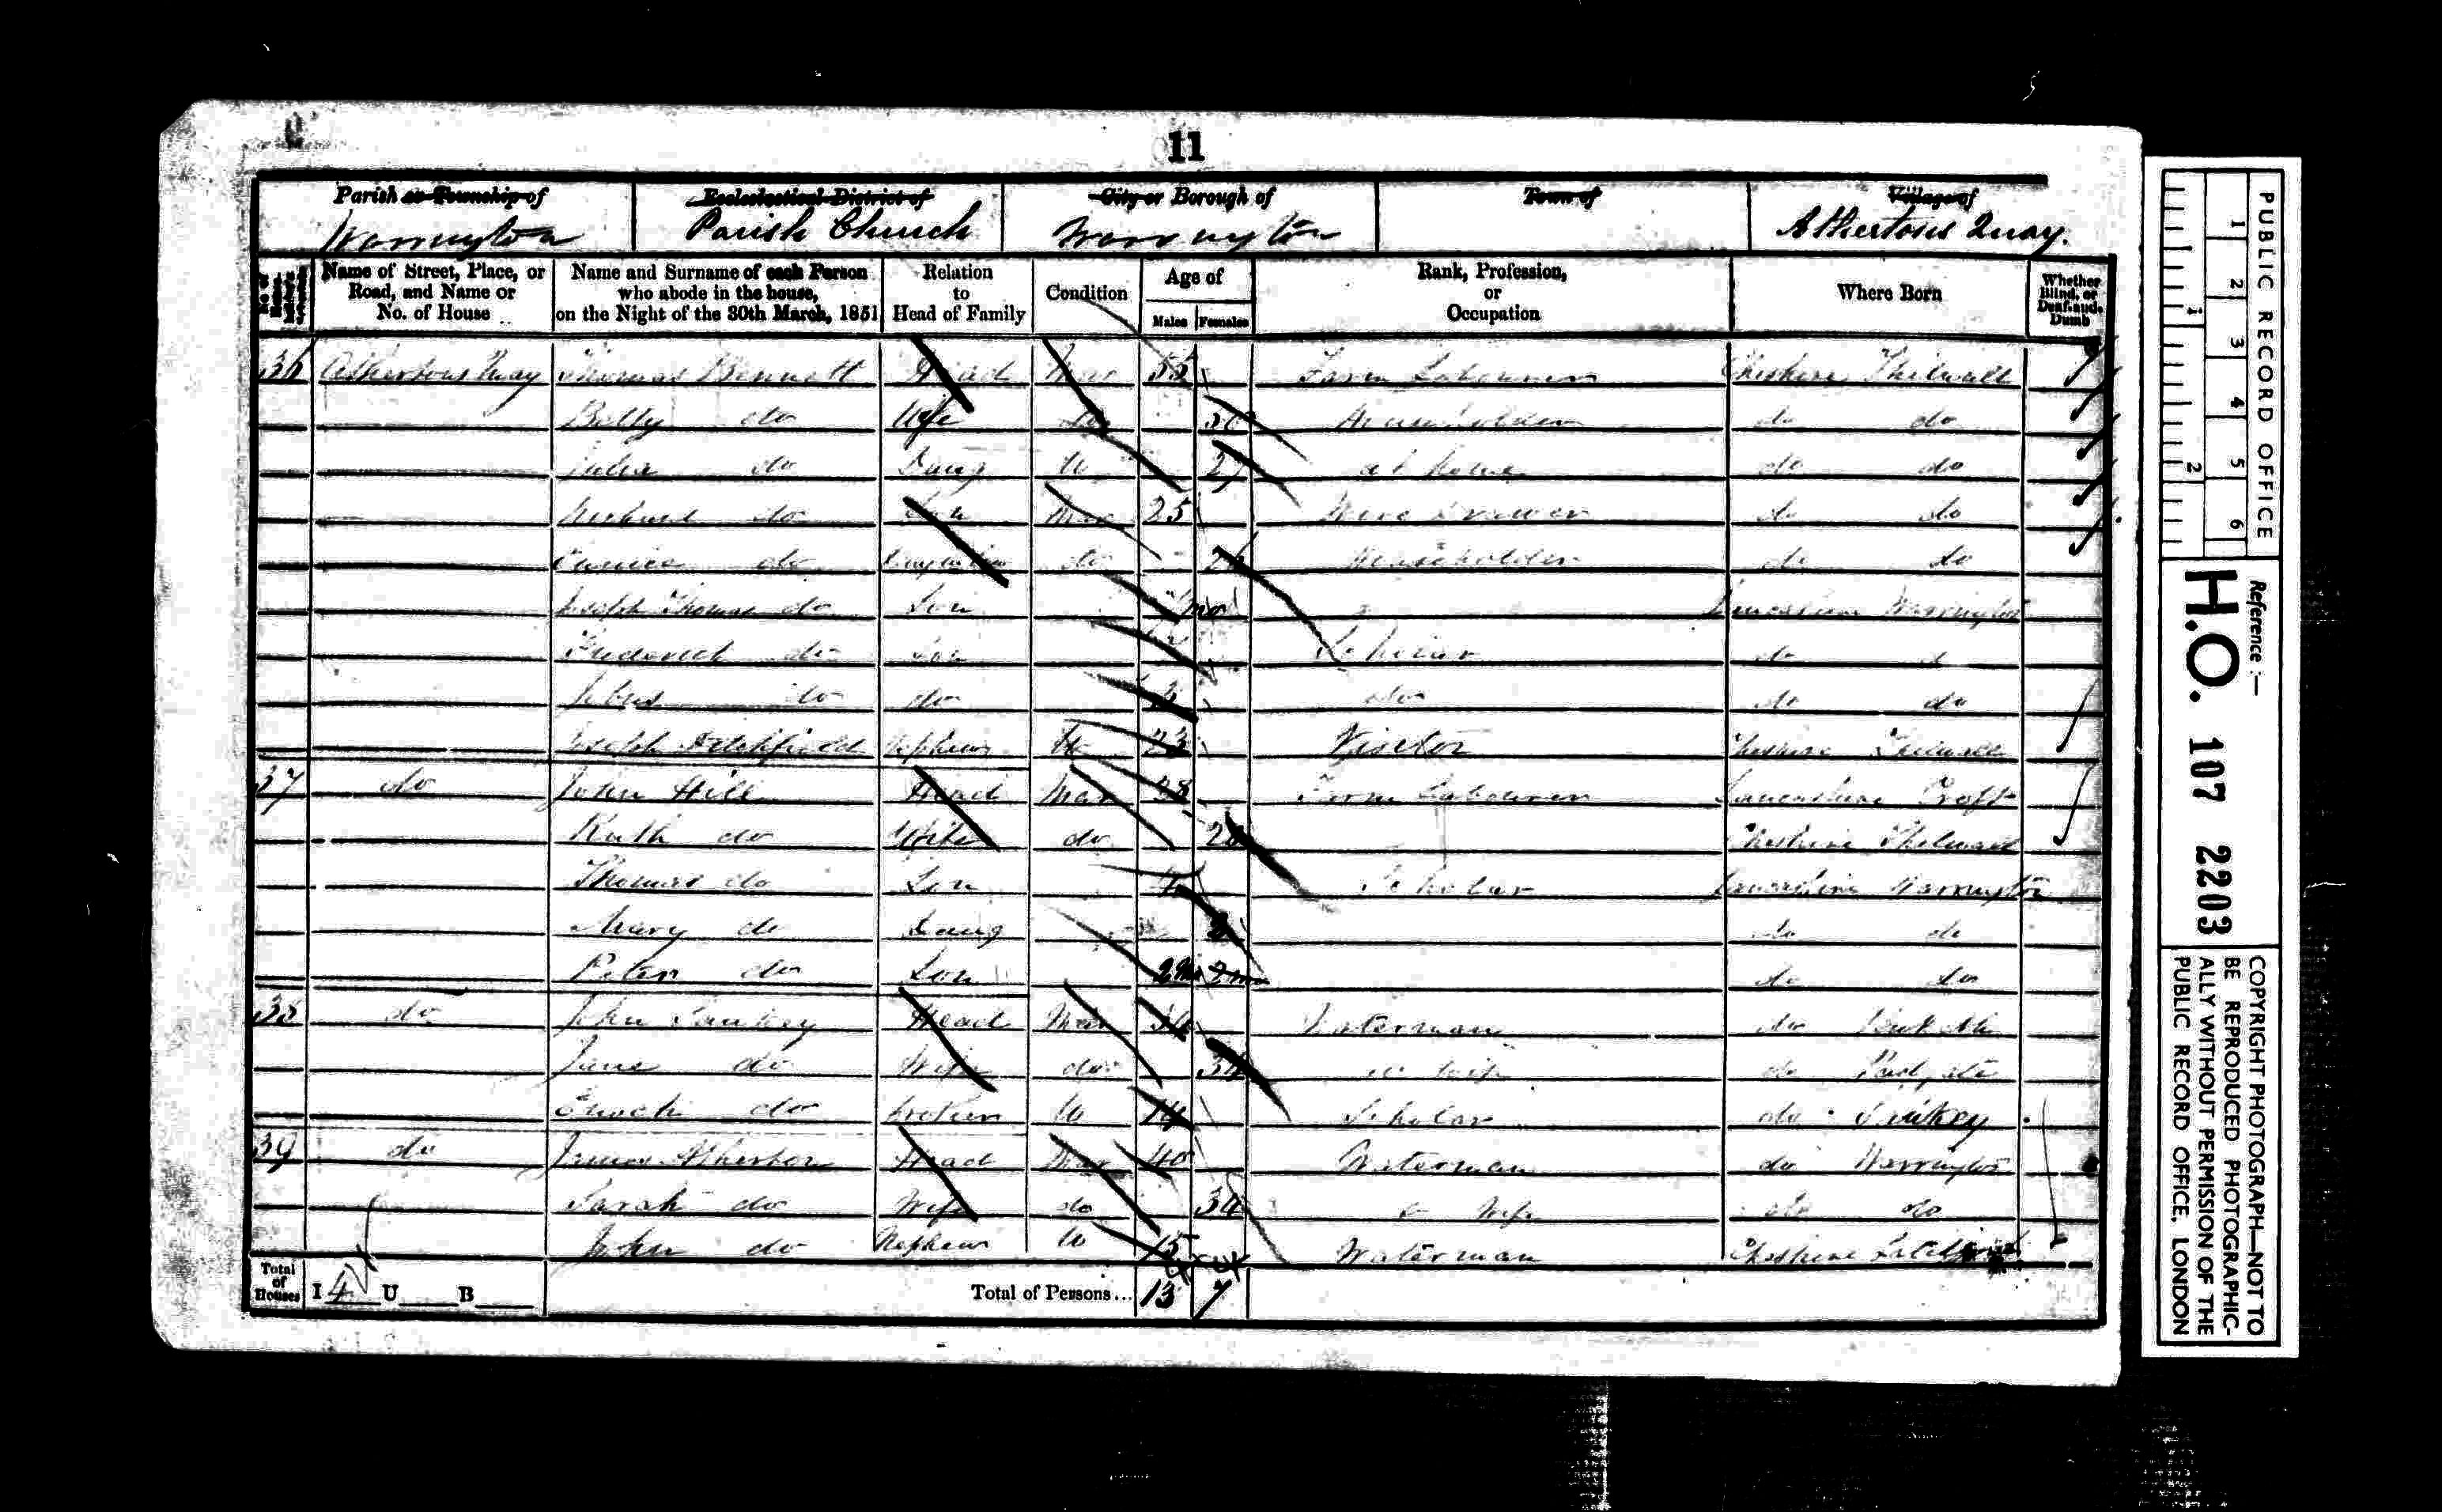 11
Parish or Township of
Warrington
Ecclesiastical District of
Parish Church
City or Borough of
Warrington
Town of
Village of
Athertons Quay.
Name of Street, Place, or Road, and Name or No. of House
Name and Surname of each Person who abode in the house, on the Night of the 30th March, 1851
Relation to Head of Family
Condition
Age of
Males Females
Rank, Profession, or Occupation
Where Born
Whether Blind, or Deaf-and-Dumb
36 Athertons Quay Thomas Bennett Head Mar Farm Labourer Cheshire Thelwall
Betty do Wife do Householder do do
do Daug U 27 at home do do
do Son Mar 25 Wire Drawer do do
Eunice do do Householder do do
Joseph Thomas do Son Lancashire Warrington
Frederick do Son Scholar do do
do do do do do
Joseph Litchfield Nephew U 23 Visitor Cheshire Thelwall
37 do John Hill Head Mar 38 Farm Labourer Lancashire Croft
Ruth do Wife do Cheshire Thelwall
Thomas do Son Scholar Lancashire Warrington
Mary do Daug do do
Peter do Son 2m do do
38 do John Sankey Head Mar 34 Waterman do Penketh
Jane do Wife do 34 Wife do Padgate
Enoch do Brother U 14 Scholar do Sankey
39 do James Atherton Head Mar 40 Waterman do Warrington
Sarah do Wife do 34 Wife do do
John do Nephew U 15 Waterman Cheshire
Total of Houses I 4 U B Total of Persons... 13 7
PUBLIC RECORD OFFICE
1 2 3 4 5 6
1 2
Reference :—
H.O. 107 2203
COPYRIGHT PHOTOGRAPH—NOT TO BE REPRODUCED PHOTOGRAPHIC-ALLY WITHOUT PERMISSION OF THE PUBLIC RECORD OFFICE, LONDON